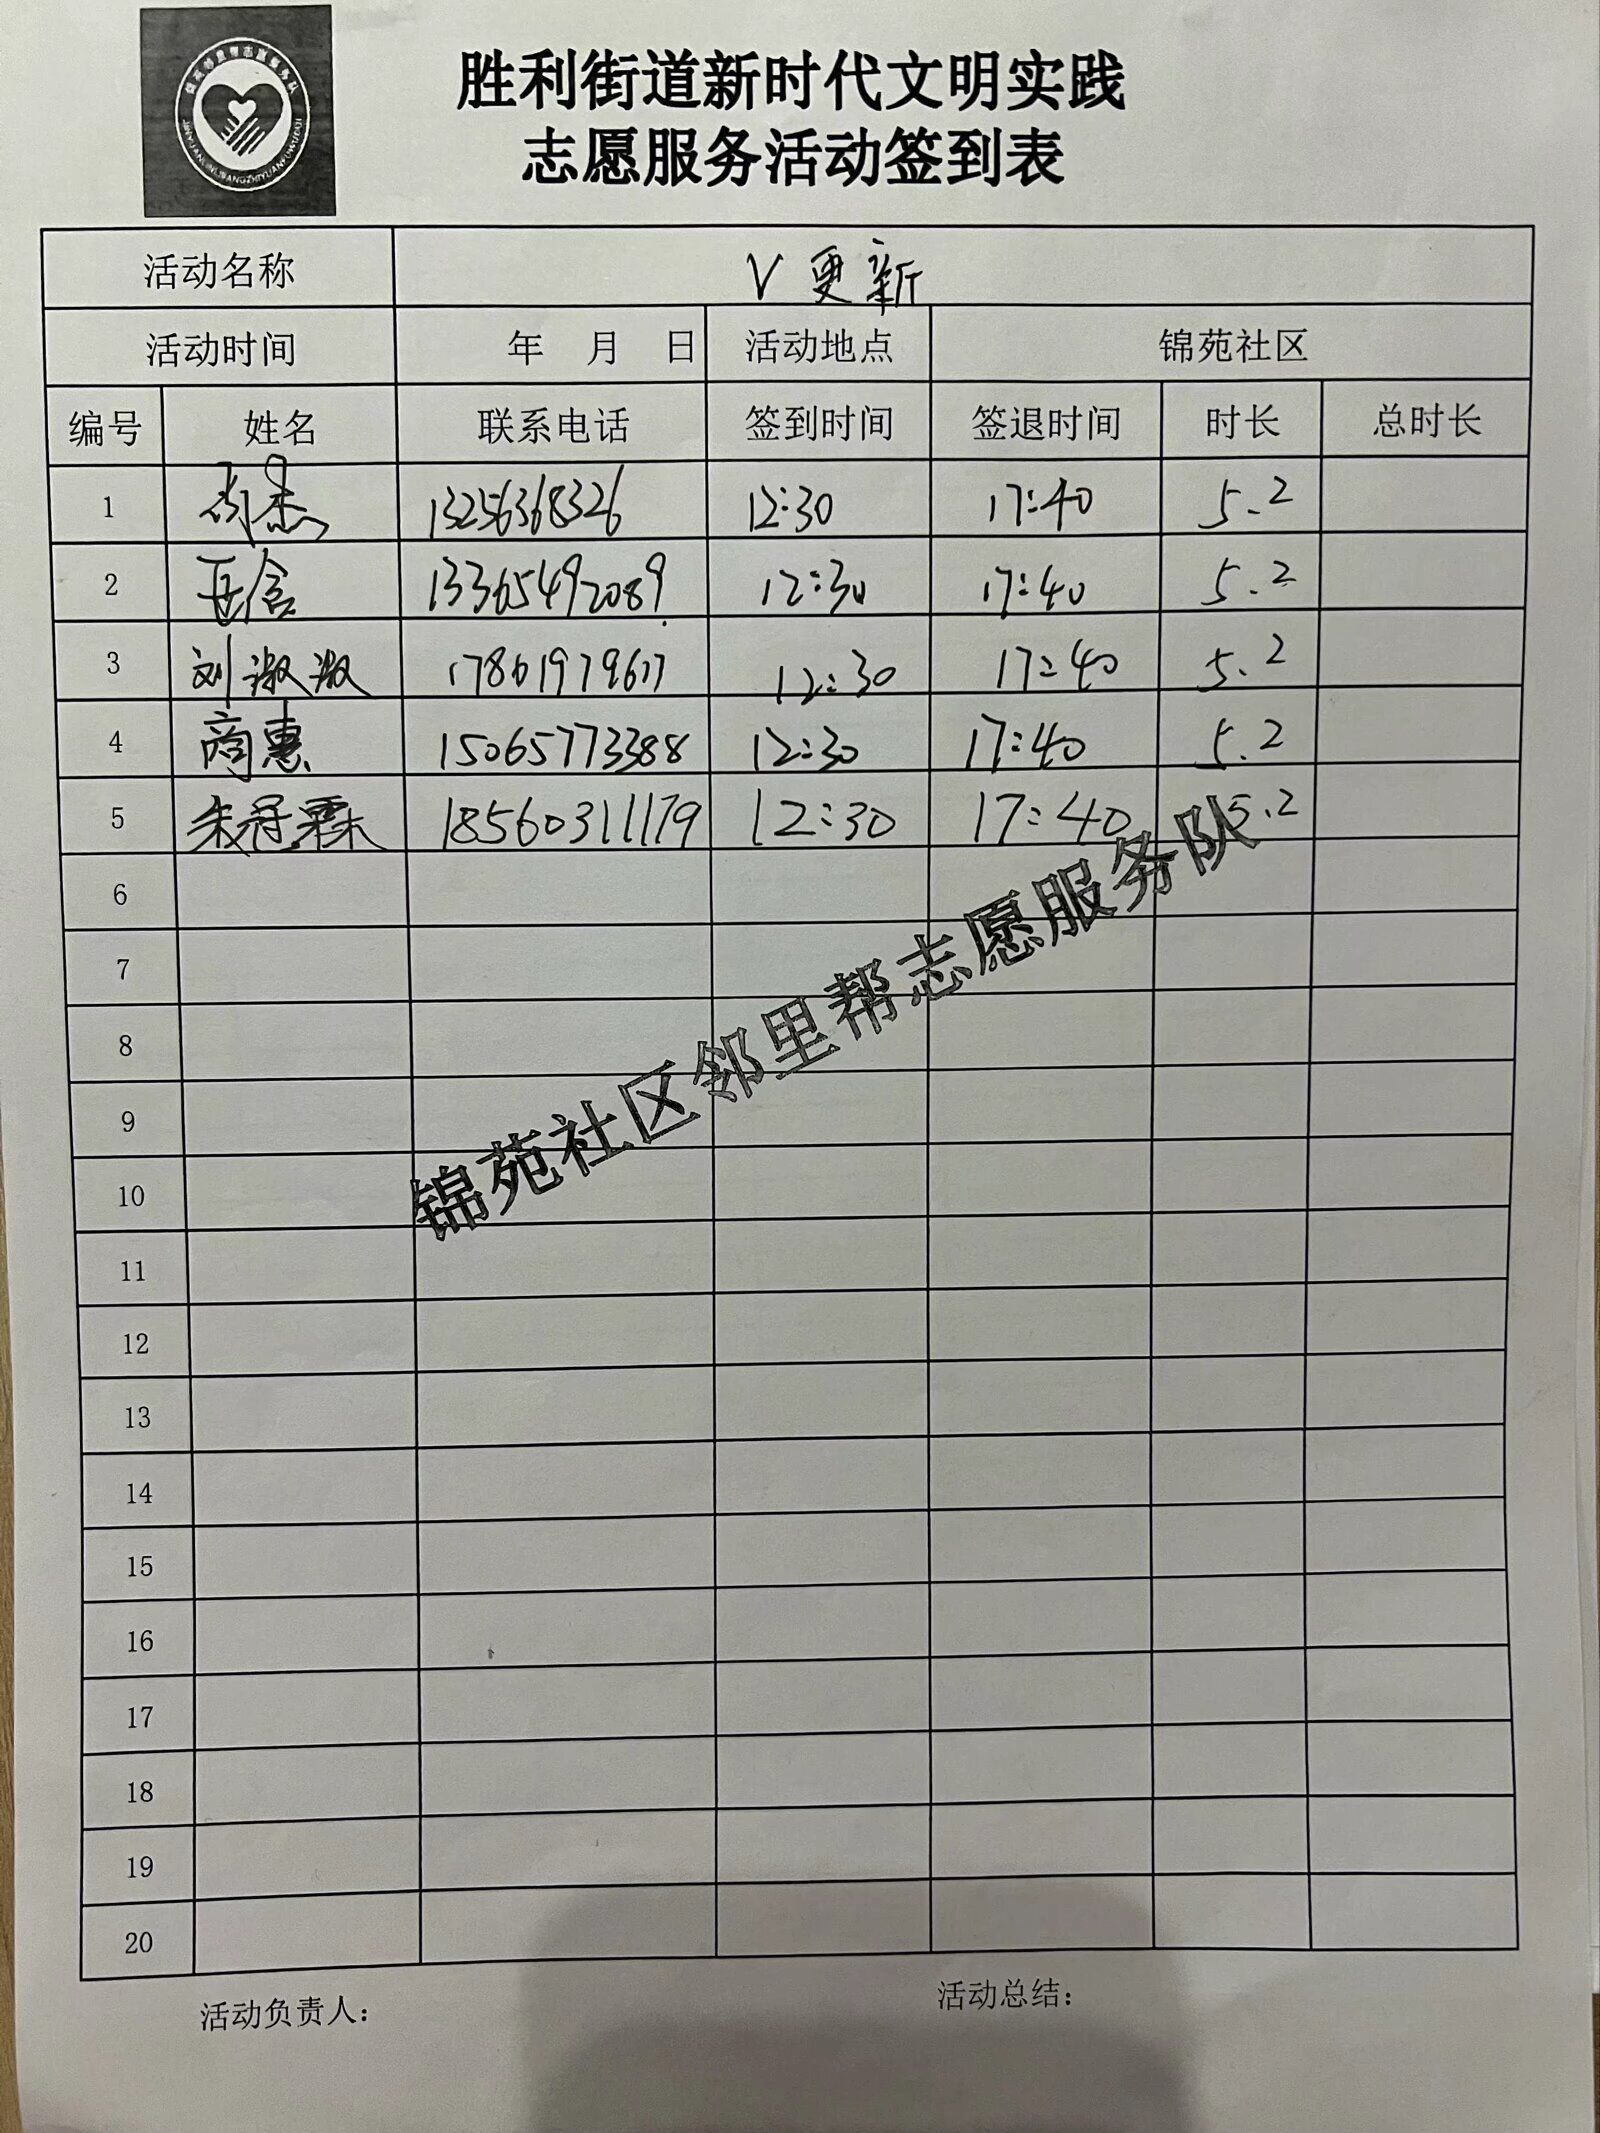 胜利街道新时代文明实践
志愿服务活动签到表
活动名称 V更新
活动时间 年 月 日 活动地点 锦苑社区
编号 姓名 联系电话 签到时间 签退时间 时长 总时长
1 尚杰 13256368326 12:30 17:40 5.2
2 岳含 13365492089 12:30 17:40 5.2
3 刘淑淑 17861979617 12:30 17:40 5.2
4 商惠 15065773388 12:30 17:40 5.2
5 朱冠霖 18560311179 12:30 17:40 5.2
6
7
8
9
10
11
12
13
14
15
16
17
18
19
20
锦苑社区邻里帮志愿服务队
活动负责人: 活动总结: